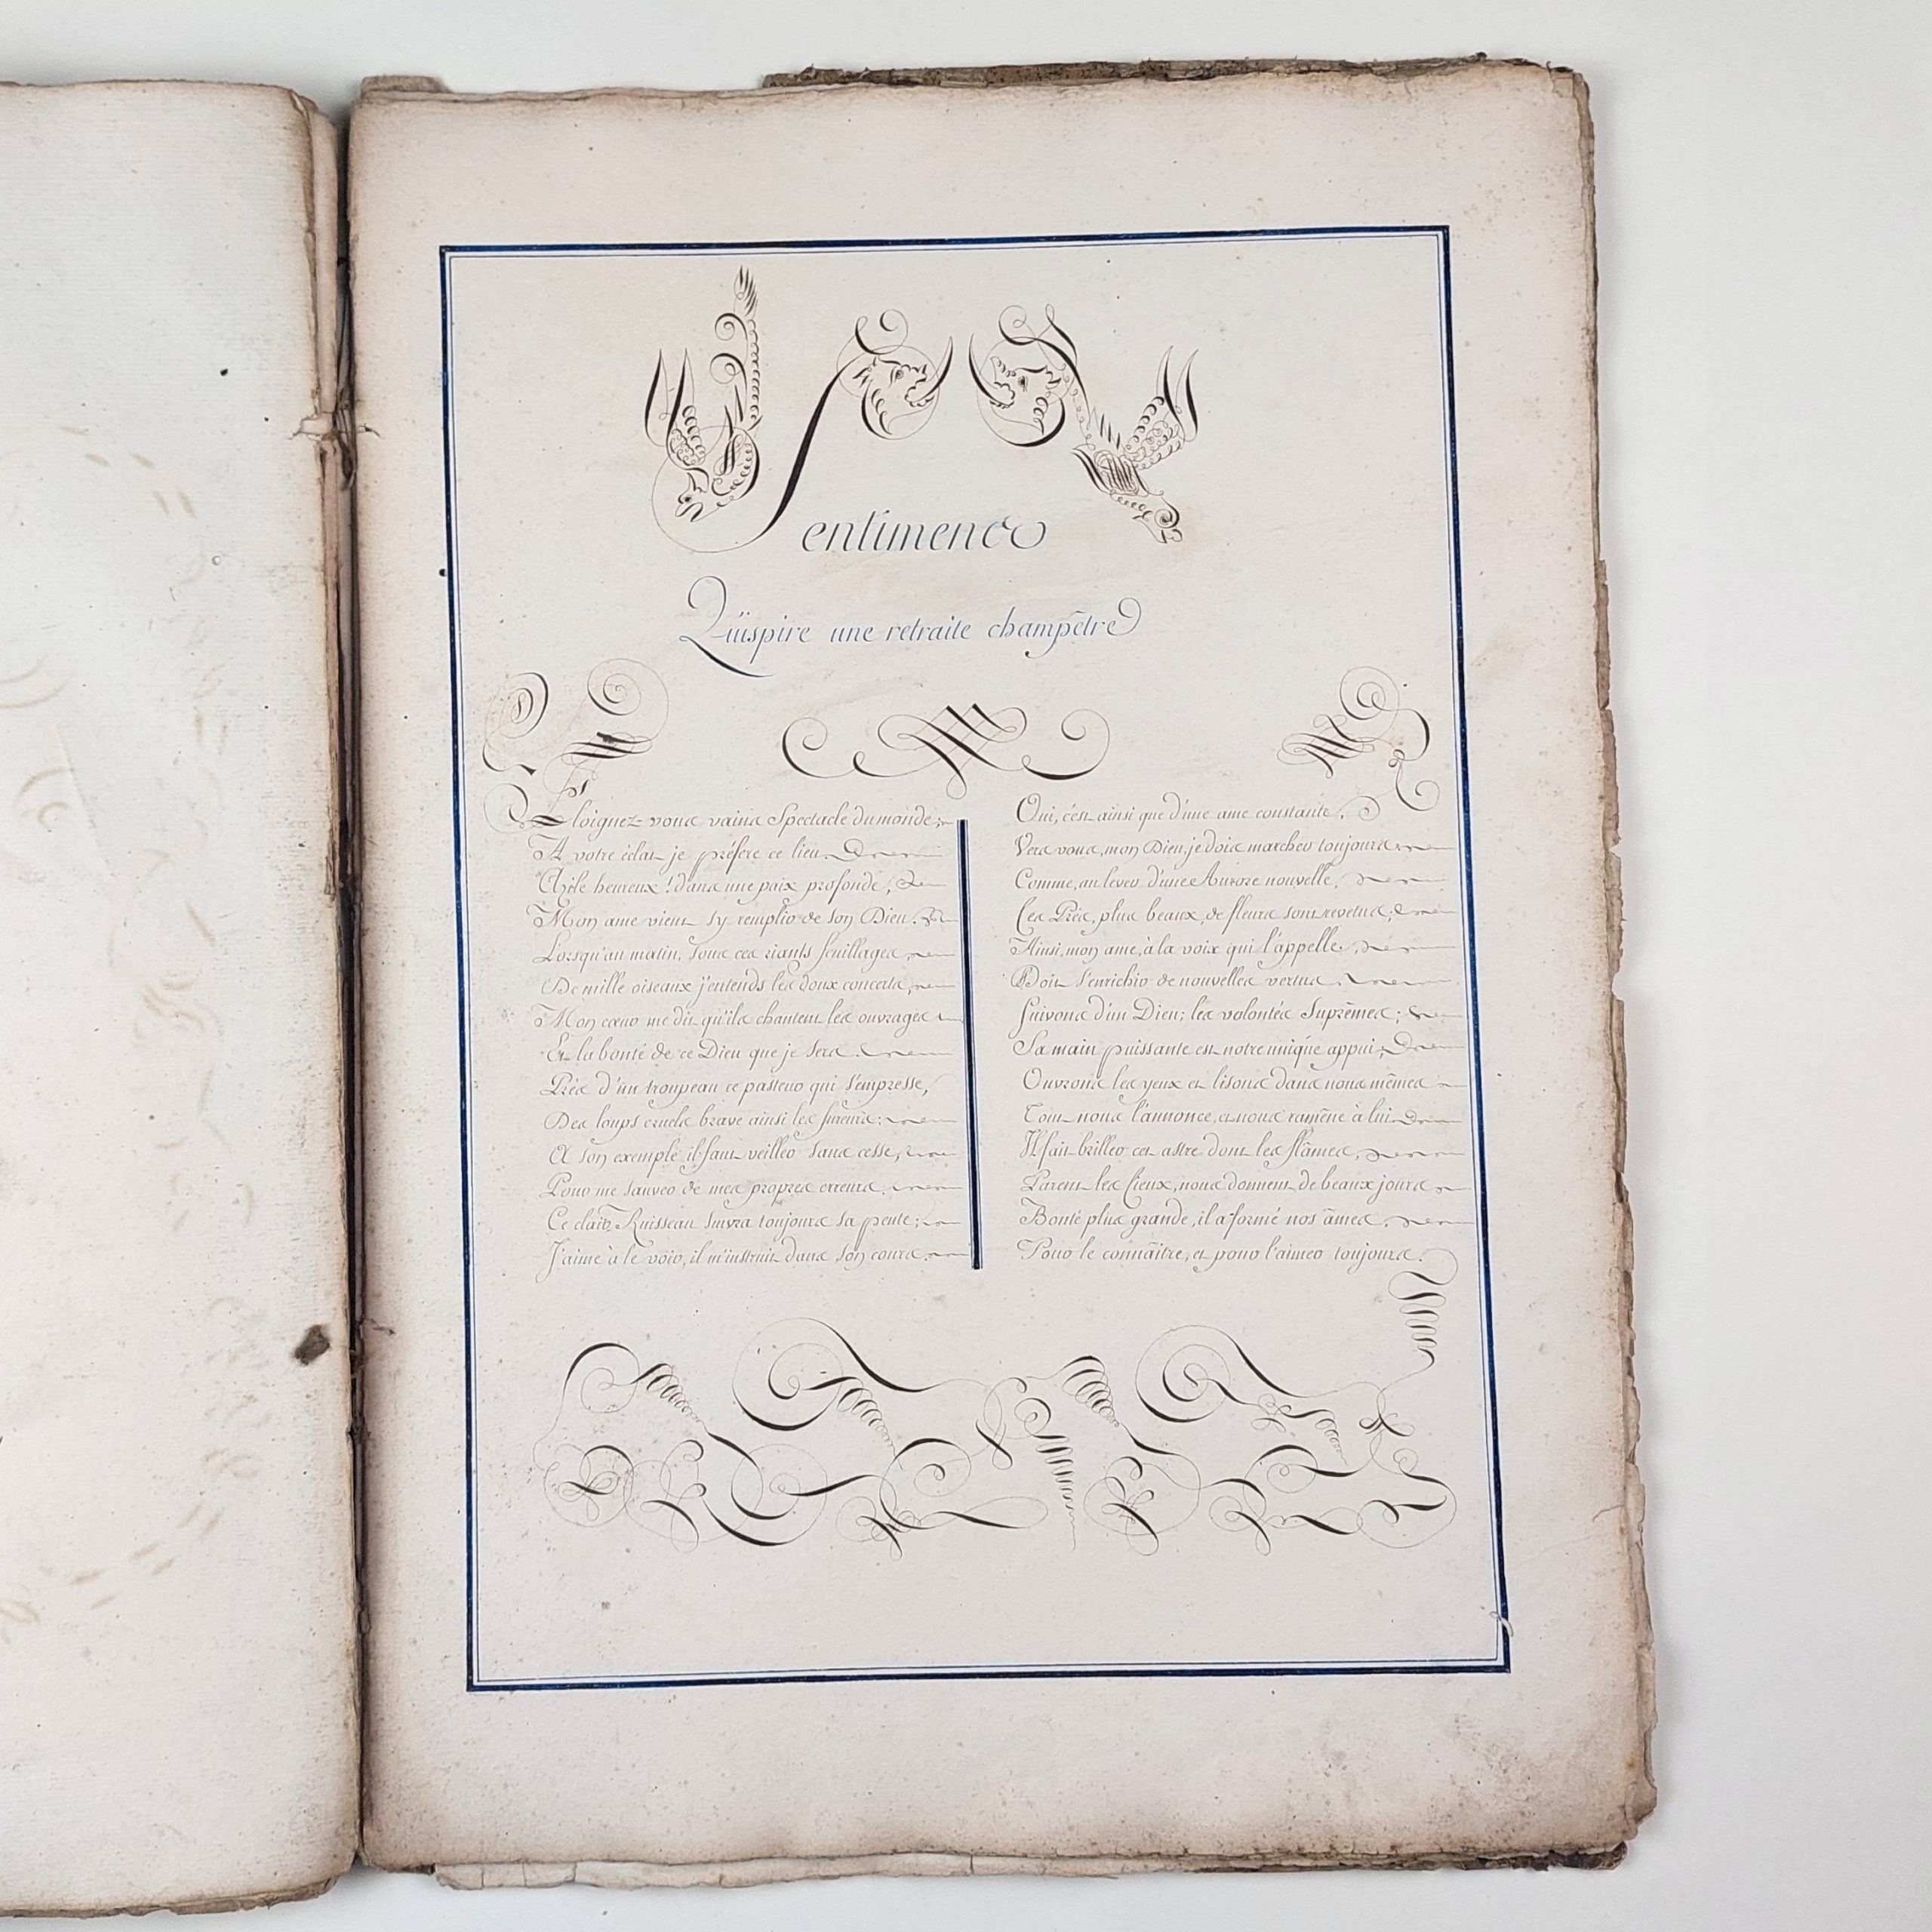 Sentimens
Qu'ispire une retraite champêtre
Eloignez-vous vains Spectacle du monde;
A votre éclat je préfere ce lieu.
Azile heureux! dans une paix profonde,
Mon ame vient s'y remplir de son Dieu.
Lorsqu'au matin, sous ces riants feuillages,
De mille oiseaux j'entends les doux concerts,
Mon cœur me dit qu'ils chantent les ouvrages
Et la bonté de ce Dieu que je sers.
Près d'un troupeau ce pasteur qui s'empresse,
Des loups cruels brave ainsi les fureurs;
A son exemple il faut veiller sans cesse,
Pour me sauver de mes propres erreurs.
Ce clair Ruisseau suivra toujours sa pente;
J'aime à le voir, il m'instruit dans son cours.
Oui, c'est ainsi que d'une ame constante,
Vers vous, mon Dieu, je dois marcher toujours
Comme, au lever d'une Aurore nouvelle,
Les Prés, plus beaux, de fleurs sont revetus;
Ainsi, mon ame, à la voix qui l'appelle,
Doit s'enrichir de nouvelles vertus.
Suivons d'un Dieu; les volontés Suprêmes;
Sa main puissante est notre unique appui;
Ouvrons les yeux et lisons dans nous mêmes
Tout nous l'annonce, et nous ramêne à lui
Il fait briller cet astre dont les flâmes,
Parent les Cieux, nous donnent de beaux jours
Bonté plus grande, il a formé nos âmes,
Pour le connâitre, et pour l'aimer toujours.